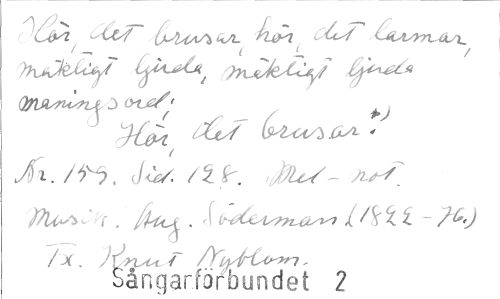 Hör, det brusar, hör, det larmar,
mäktigt ljuda, mäktigt ljuda
maningsord;
Hör, det brusar:*)
Nr. 159. Sid. 128. Mel-not.
Musik: Aug. Söderman (1822-76.)
Tx. Knut Nyblom.
Sångarförbundet 2